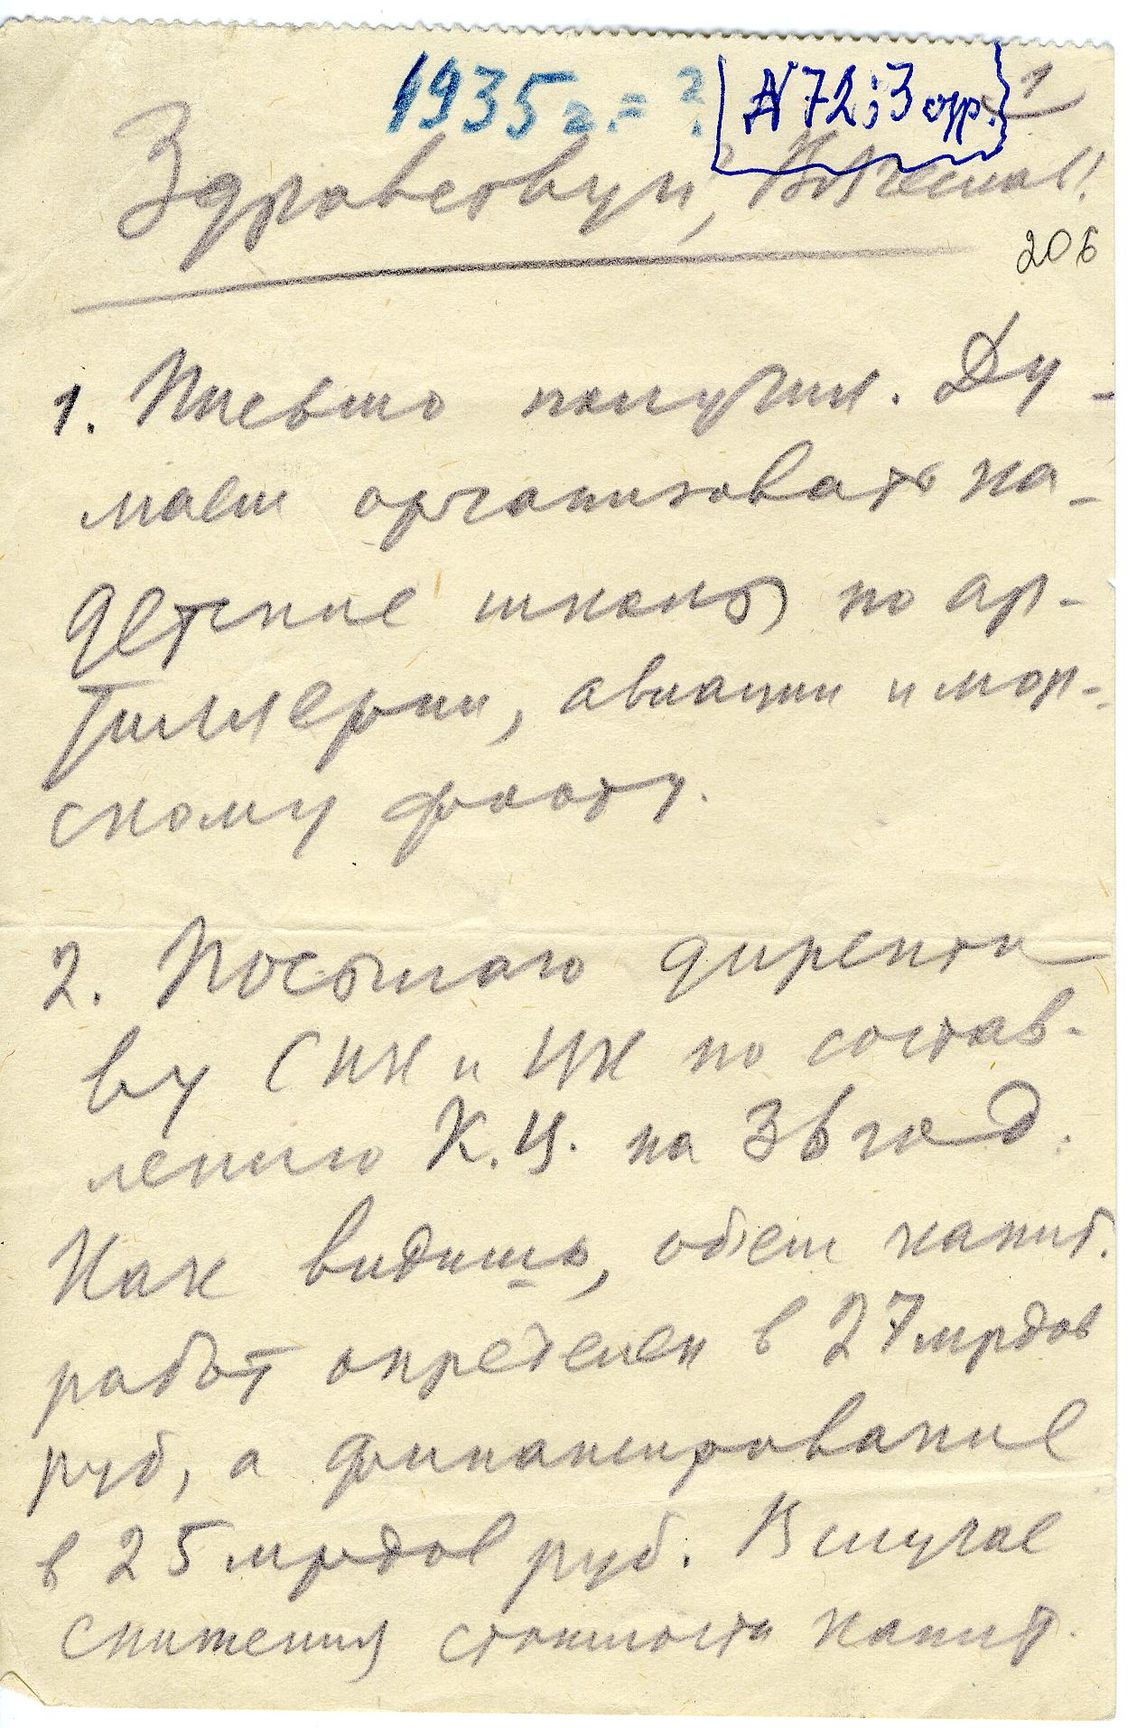 1935 г. = ? N 72; 3 стр. 1
Здравствуй, Вячеслав!
206
1. Письмо получил. Ду-
маем организовать ка-
детские школы по ар-
тиллерии, авиации и мор-
скому флоту.
2. Посылаю директи
ву СНК и ЦК по состав-
лению К.Ц. на 36 год.
Как видишь, об'ем капит.
работ определен в 27 мрдов
руб, а финансирование
в 25 мрдов руб. В случае
снижения стоимости капит.